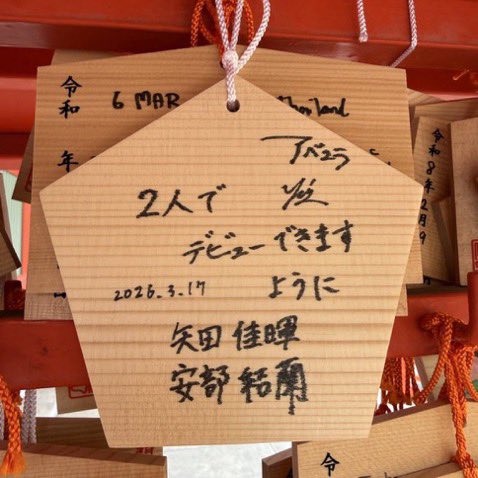 令和
6 MAR
Thailand
年
アバユラ
2人で 必
デビューできます
2026.3.17 ように
矢田 佳暉
安部 結蘭
令和8年2月9
令